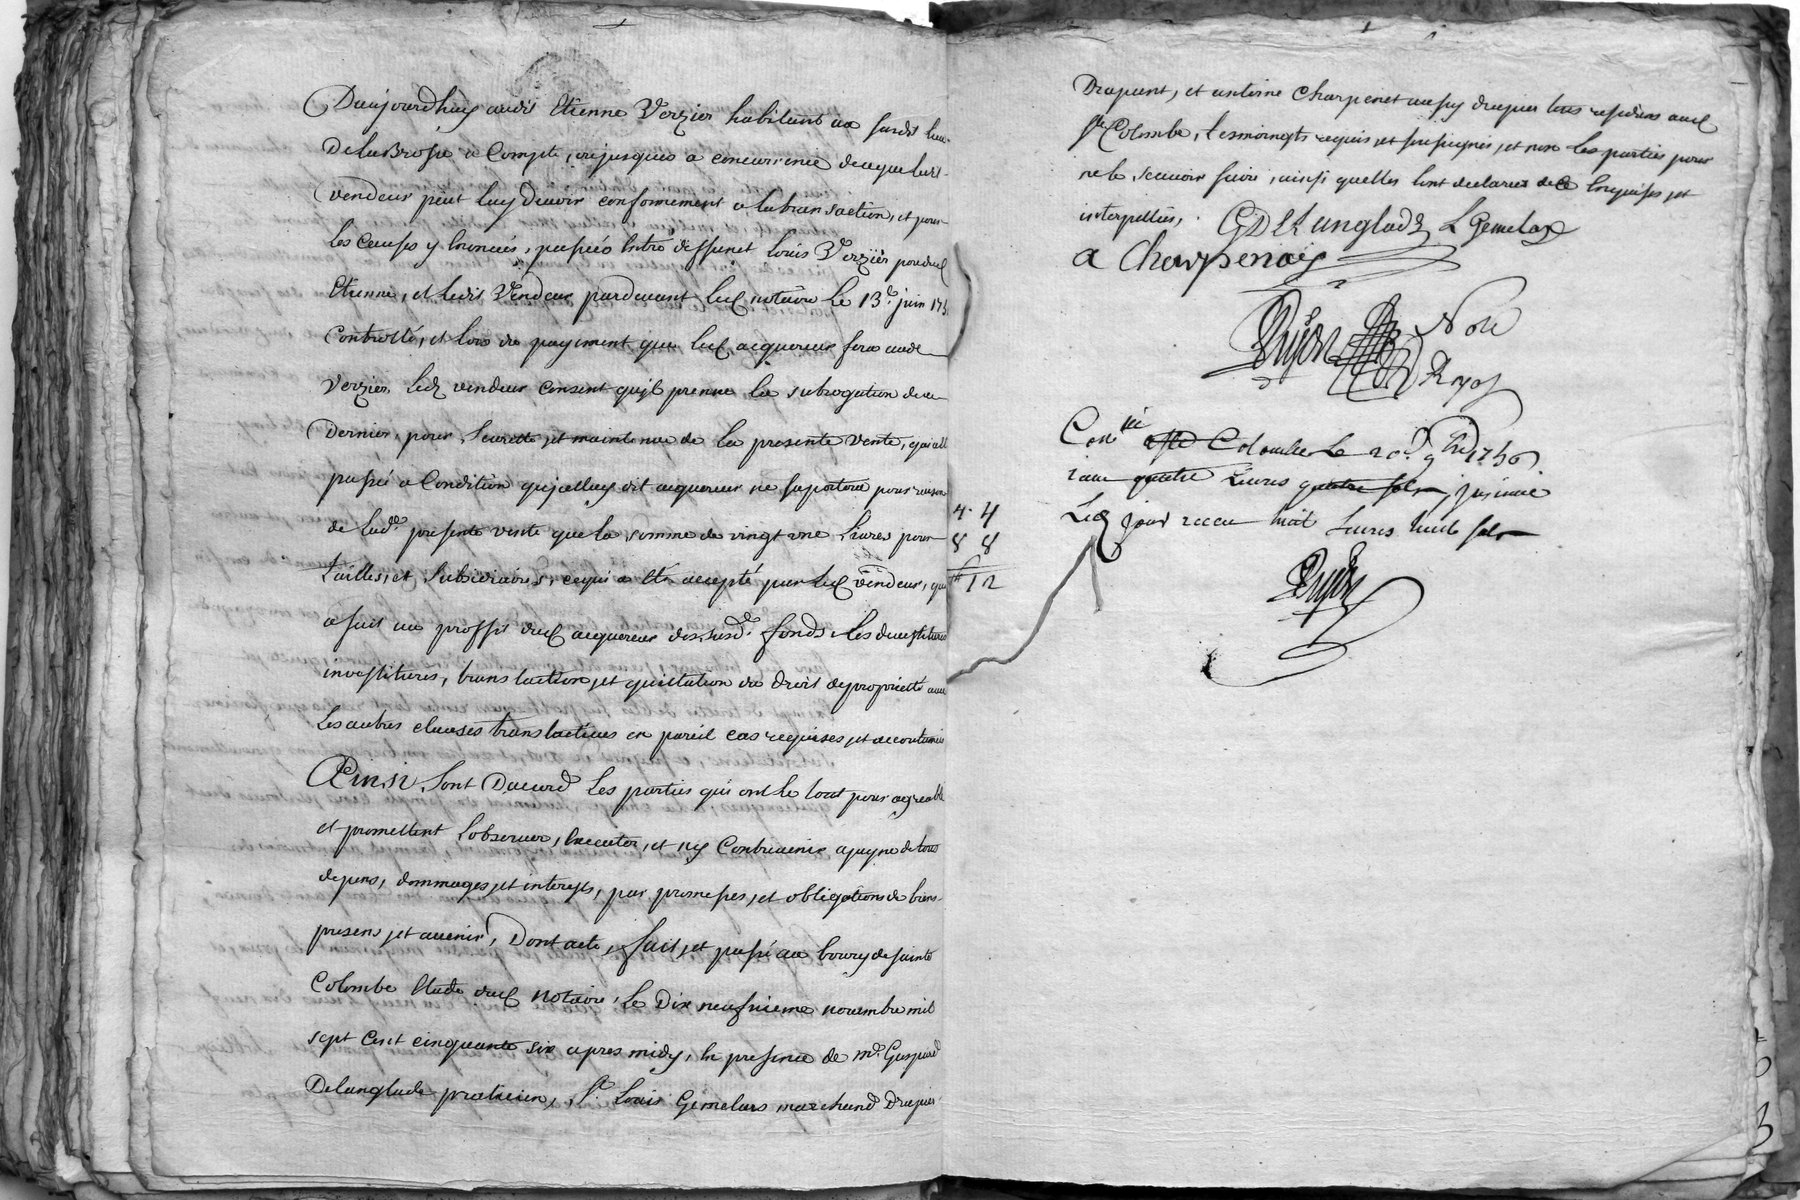 Daujourdhuy audit Etienne Verzier habitant au susdit lieu
Delabrosse a Compte, ou jusques a concurrence de ce que ledit
vendeur peut luy devoir conformement a la transaction, et pour
les causes y enoncés, passée entre deffunct Louis Verzier pere dud
Etienne, et ledit Vendeur pardevant led notaire le 13e juin 175
Controllé, et lors du payment que led acquereur fera aud
Verzier led vendeur consent qu'il prenne la subrogation de ce
Dernier, pour Seureté et maintenue de la presente vente,
passée a Condition qu'icelluy dit acquereur ne suportera pour raison
de lad.e presente vente que la somme de vingt une Livres pour
tailles, et subsidiaires, ce qui a été accepté par led vendeur, qui
a fait au proffit dud acquereur des susd.s fonds les devestitures
investitures, translation, et quittation du droit de proprietté avec
les autres clauses translatives en pareil cas requises et accoutumées
Ainsi Sont Daccord les parties qui ont le tout pour agreable
et promettent L'observer, Executer, et n'y Contrevenir a payne de tous
depens, dommages, et interests, par promesses, et obligations de biens
presens et avenir, Dont acte, fait, et passé au bourg de sainte
Colombe Etude dud notaire, le Dix neufvieme novembre mil
sept Cent cinquante six apres midy, En presence de mr. Gaspard
Delanglade praticien, Sr. Louis Gemelas marchand Drapier
4. 4
8 8
12
Drapant, et antoine Charpenet aussy drapier tous residans aud
ste. Colombe, tesmoingts requis, et soussignés, et non les parties pour
ne le scavoir faire, ainsi quelles l'ont declarées de ce Enquises, et
interpellées.
G Delanglade L Gemelas
a Charpenay
Pryon Notre
Royal
Conlé a Ste Colombe Le 20e 9bre 1756.
reçu quatre Livres quatre sols, insinué
Led jour receu huit Livres huit sols
Pryon